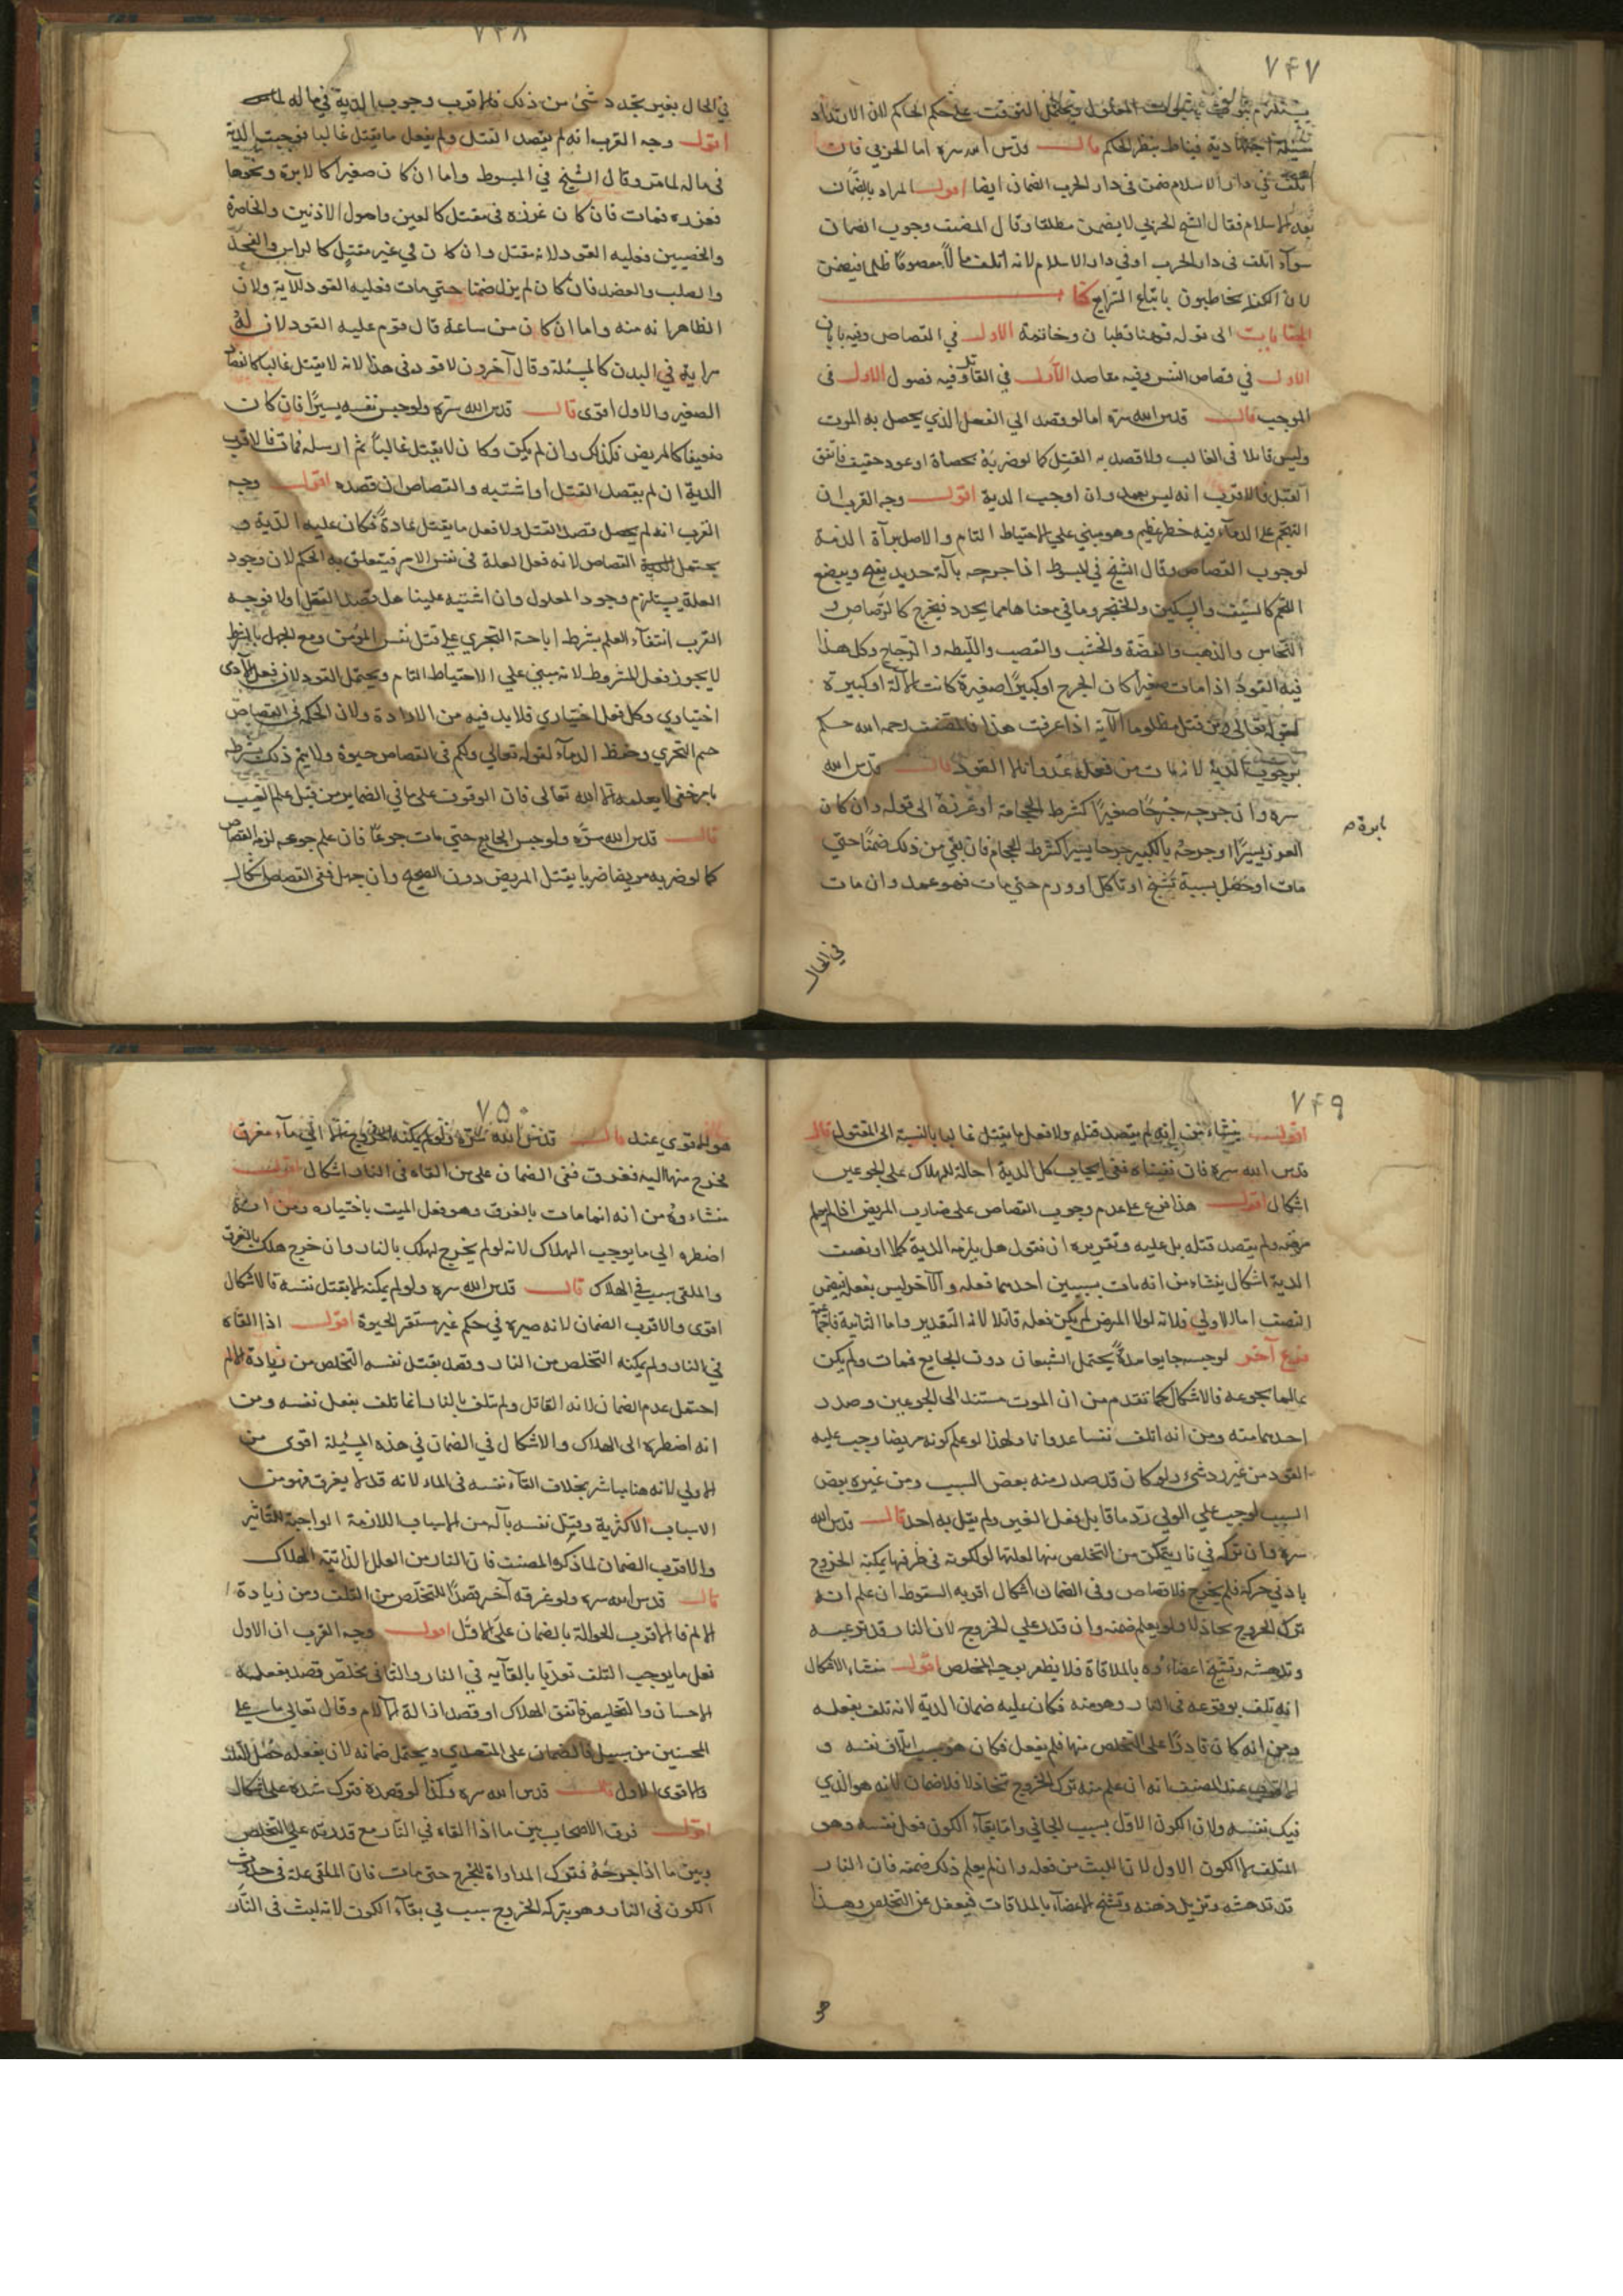 ٧٤٧
يستلزم ثبوت المعلول ويحتمل التوقف على حكم الحاكم لان الارتداد
مسئلة اجتهادية فيناط بنظر الحاكم قال قدس الله سره اما الحربي فان
اتلف في دار الاسلام ضمن وفي دار الحرب الضمان ايضا اقول المراد بالضمان
بعد الاسلام فقال الشيخ الحربي لا يضمن مطلقا وقال المصنف وجوب الضمان
سوآء اتلف في دار الحرب او في دار الاسلام لانه اتلف مالاً معصومًا ظلما فيضمن
لان الكفار مخاطبون باتباع الشرايع كتا
الجنايات الى قوله فهنا قطبان وخاتمة الاول في القصاص وفيه بابان
الاول في قصاص النفس وفيه مقاصد الاول في القاتل وفيه فصول الاول في
الموجب قال قدس الله سره اما لو قصد الى الفعل الذي يحصل به الموت
وليس قاتلا في الغالب ولا قصد به القتل كما لو ضربة بحصاة او عود خفيف فاتفق
القتل فالاقرب انه ليس بعمد وان اوجب الدية اقول وجه القرب ان
التهجم على الدماء فيه خطر عظيم وهو مبني على الاحتياط التام والاصل برآة الذمة
لوجوب القصاص وقال الشيخ في المبسوط اذا جرحه بآلة حديد يقطع ويبضع
اللحم كالسيف والسكين والخنجر وما في معناها مما يحدد فيخرج كالرصاص و
النحاس والذهب والفضة والخشب والقصب والليطه والزجاج وكل هذا
فيه القود اذا مات صغيرا كان الجرح او كبيرًا صغيرة كانت الآلة او كبيرة
لقوله تعالى ومن قتل مظلوما الآية اذا عرفت هذا فالمصنف رحمه الله حكم
بوجوب الدية لانه مات من فعله عدوانا لا القود قال قدس الله
سره وان جرحه جرحًا صغيرًا كشرط الحجامة او غرزة الى قوله وان كان
بابرة م
الغرز يسيرًا او جرحه بالكبير جرحا يسيرا كشرط الحجام فان بقي من ذلك ضمنًا حتى
مات او حصل بسببه تشنج او تآكل او ورم حتى مات فهو عمد وان مات
في الحال
٧٤٨
في الحال بغير تجدد شئ من ذلك فالاقرب وجوب الدية في ماله
اقول وجه القرب انه لم يقصد القتل ولم يفعل ما يقتل غالبا فوجبت الدية
في ماله لما مر وقال الشيخ في المبسوط واما ان كان صغيرا كالابرة ونحوها
فغرزه فمات فان كان غرزه في مقتل كالعين واصول الاذنين والخاصرة
والخصيين فعليه القود لانه مقتل وان كان في غير مقتل كالراس والفخذ
والصلب والعضد فان كان لم يزل ضمنا حتى مات فعليه القود للآية ولان
الظاهر انه منه واما ان كان من ساعة قال قوم عليه القود لان له
سراية في البدن كالمسئلة وقال آخرون لا قود في هذا لانه لا يقتل غالبا كالعصا
الصغير والاول اقوى قال قدس الله سره ولو حبس نفسه يسيرًا فان كان
ضعيفا كالمريض فكذلك وان لم يكن وكان لا يقتل غالباً ثم ارسله فمات فالاقرب
الدية ان لم يقصد القتل او اشتبه والقصاص ان قصده اقول وجه
القرب انه لم يحصل قصد القتل ولا فعل ما يقتل عادةً فكان عليه الدية و
يحتمل القصاص لانه فعل العلة في نفس الامر فيتعلق به الحكم لان وجود
العلة يستلزم وجود المعلول وان اشتبه علينا هل قصد القتل او لا فوجه
القرب انتفاء العلم بشرط اباحة التجري على قتل نفس المؤمن ومع الجهل بالشرط
لا يجوز فعل المشروط لانه مبني علي الاحتياط التام ويحتمل القود لان فعل الآدمي
اختياري وكل فعل اختياري فلا بد فيه من الارادة ولان الحكمة في القصاص
حسم التجري وحفظ الدماء لقوله تعالى ولكم في القصاص حيوة ولا يتم ذلك بشرطه
بامر خفي لا يعلمه الا الله تعالى فان الوقوف على ما في الضماير من قبيل علم الغيب
قال قدس الله سره ولو حبس الجايع حتى مات جوعًا فان علم جوعه لزمه القصاص
كما لو ضربه مريضا ضربا يقتل المريض دون الصحيح وان جهل ففي القصاص اشكال
٧٤٩
اقول ينشاء من انه لم يقصد قتله ولا فعل ما يقتل غالبا بالنسبة الى المقتول قال
قدس الله سره فان نفيناه ففي ايجاب كل الدية احالة للهلاك على الجوعين
اشكال اقول هذا فرع على عدم وجوب القصاص على ضارب المريض اذا لم يعلم
مرضه ولم يقصد قتله بل عليه وتقريره ان نقول هل يلزمه الدية كلا او نصف
الدية اشكال ينشاء من انه مات بسببين احدهما فعله والآخر ليس بفعله فيضمن
النصف اما الاولى فلانه لولا المرض لم يكن فعله قاتلا لانه التقدير واما الثانية
فرع آخر لو حبسه جايعا مدةً يحتمل الشبعان دون الجايع فمات ولم يكن
عالما بجوعه فالاشكال كما تقدم من ان الموت مستند الى الجوعين وصدر
احدهما منه ومن انه اتلف نفسا عدوانا ولهذا لو علم كونه مريضا وجب عليه
القود من غير رد شئ ولو كان قد صدر منه بعض السبب ومن غيره بعض
السبب لوجب علي الولي رد ما قابل بفعل الغير ولم يقل به احد قال قدس الله
سره وان تركه في نار يتمكن من التخلص منها لعلتها لو لكونه في طرفها يمكنه الخروج
بادنى حركة فلم يخرج فلا قصاص وفي الضمان اشكال اقربه السقوط ان علم انه
ترك الخروج تخاذلا ولو لم يعلم ضمنه وان قدر علي الخروج لان النار قد ترعبه
وتدهشه وتشنج اعضاءه بالملاقاة فلا يظفر بوجه المخلص اقول منشاء الاشكال
انه تلف بوقوعه في النار وهو منه فكان عليه ضمان الدية لانه تلف بفعله
ومن انه كان قادرًا على التخلص منها فلم يفعل فكان هو سبب اتلاف نفسه و
الاقرب عند المصنف انه ان علم منه ترك الخروج تخاذلا فلا ضمان لانه هو الذي
نفسه ولان الكون الاول بسبب الجاني واما بقاء الكون فعل نفسه وهو
المتلف لا الكون الاول لان اللبث من فعله وان لم يعلم ذلك ضمنه فان النار
قد تدهشه وتزيل ذهنه وتشنج الاعضاء بالملاقات فيغفل عن التخلص وهذا
٧٥٠
هو الاقوى عند قال قدس الله سره ولو لم يمكنه الخروج الا الى ماء مغرق
فخرج منها اليه فغرق ففي الضمان على من القاه في النار اشكال اقول
منشاءوه من انه انما مات بالغرق وهو فعل الميت باختياره ومن انه
اضطره الى ما يوجب الهلاك لانه لو لم يخرج لهلك بالنار وان خرج هلك بالغرق
والملقى سبب في الهلاك قال قدس الله سره ولو لم يمكنه الا بقتل نفسه فالاشكال
اقوى والاقرب الضمان لانه صيره في حكم غير مستقر الحيوة اقول اذا القاه
في النار ولم يمكنه التخلص من النار وقصد بقتل نفسه التخلص من زيادة الالم
احتمل عدم الضمان لانه القاتل ولم تلف بالنار انما تلف بفعل نفسه ومن
انه اضطره الى الهلاك والاشكال في الضمان في هذه المسئلة اقوى من
الاولى لانه هنا مباشر بخلاف القاء نفسه في الماء لانه قد لا يغرق فهو من
الاسباب الاكثرية وقتل نفسه بآلة من الاسباب اللازمة الواجبة التاثير
والاقرب الضمان لما ذكره المصنف فان النار من العلل الذاتية الهلاك
قال قدس الله سره ولو غرقه آخر قصدًا للتخلص من التلف ومن زيادة ا
الالم فالاقرب الحوالة بالضمان على الاول اقول وجه القرب ان الاول
فعل ما يوجب التلف تعديا بالقآيه في النار والثاني مخلص قصد بفعله
الاحسان والتخليص فاتفق الهلاك او قصد ازالة الآلام وقال تعالى ما على
المحسنين من سبيل فالضمان على المتعدي ويحتمل ضمانه لان بفعله حصل التلف
والاقوى الاول قال قدس الله سره وكذا لو فصده فترك شده على اشكال
اقول فرق الاصحاب بين ما اذا القاه في النار مع قدرته علي التخلص
وبين ما اذا جرحه فترك المداواة للجرح حتى مات فان الملقى علة في حدوث
الكون في النار وهو بتركه الخروج سبب في بقاء الكون لانه لبث في النار